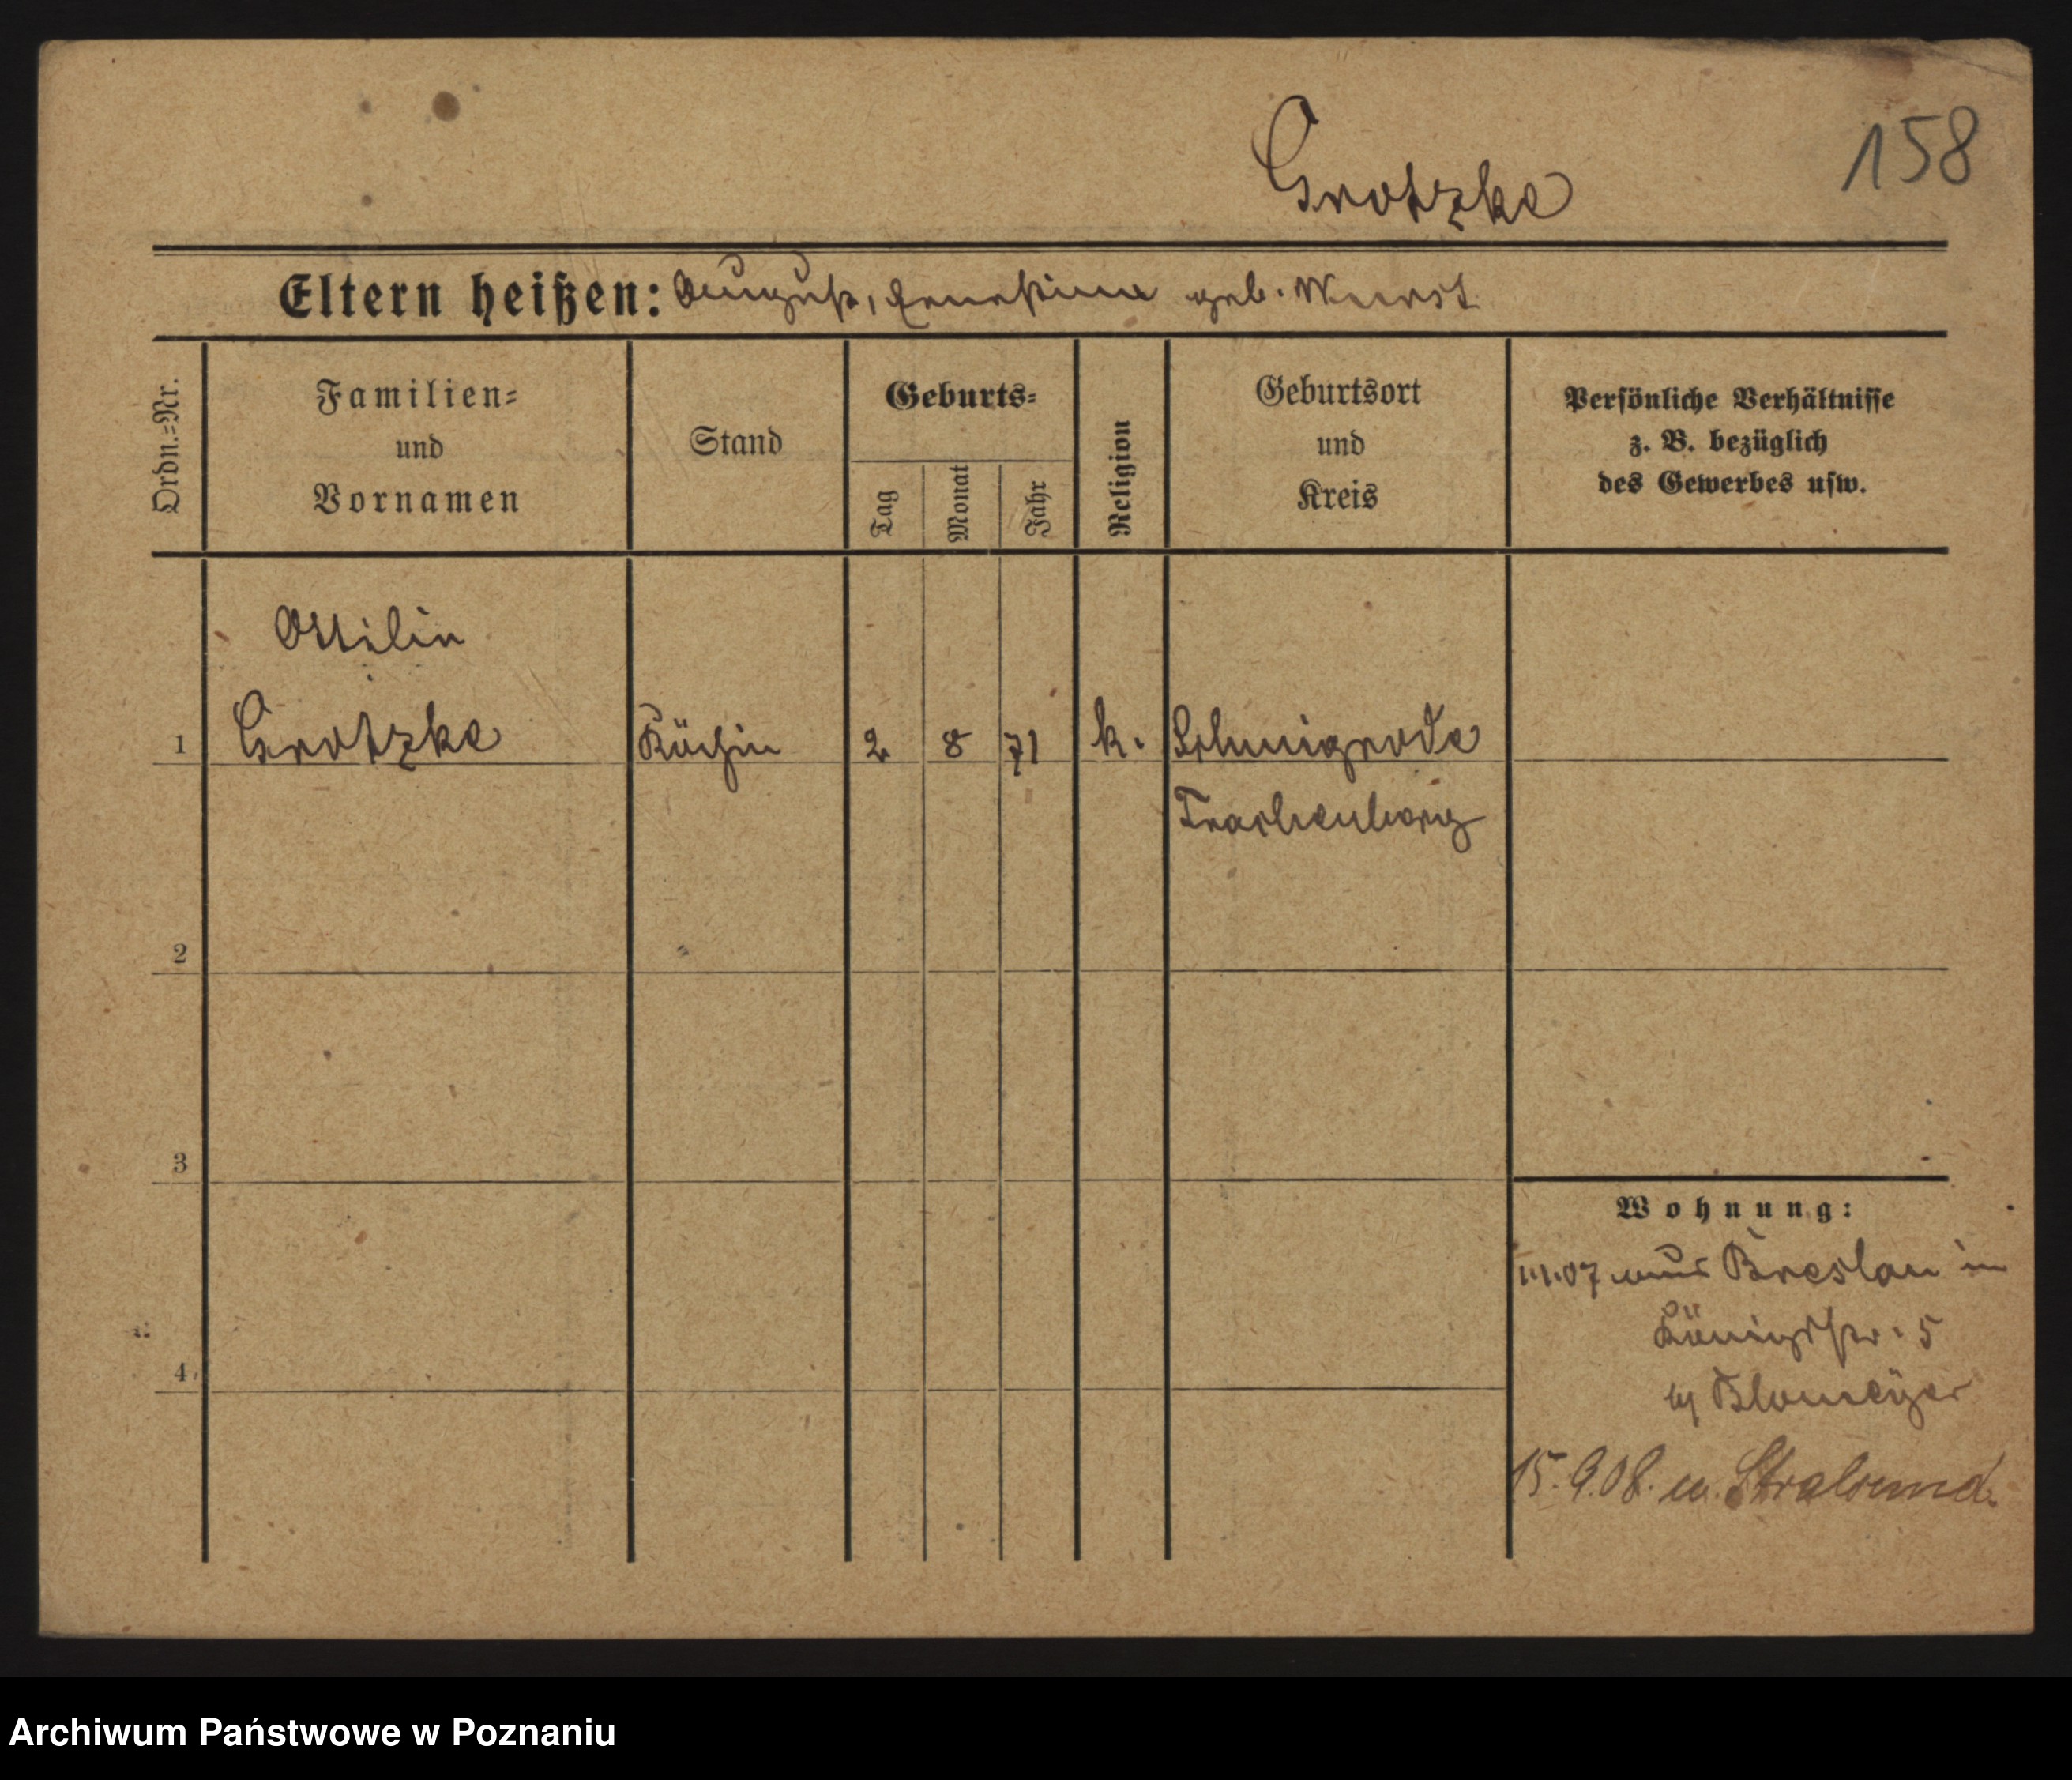 Grotzke
158
Eltern heißen: August, Ernestine geb. Wurst
Ordn.=Nr.
Familien=
und
Vornamen
Stand
Geburts=
Tag
Monat
Jahr
Religion
Geburtsort
und
Kreis
Persönliche Verhältnisse
z. B. bezüglich
des Gewerbes usw.
Ottilie
1 Grotzke Köchin 2 8 71 k. Schmigrode
Trachenberg
2
3
4
Wohnung:
1.07 aus Breslau in
Königstr. 5
by Blomeÿer
15.9.08. n. Stralsund.
Archiwum Państwowe w Poznaniu